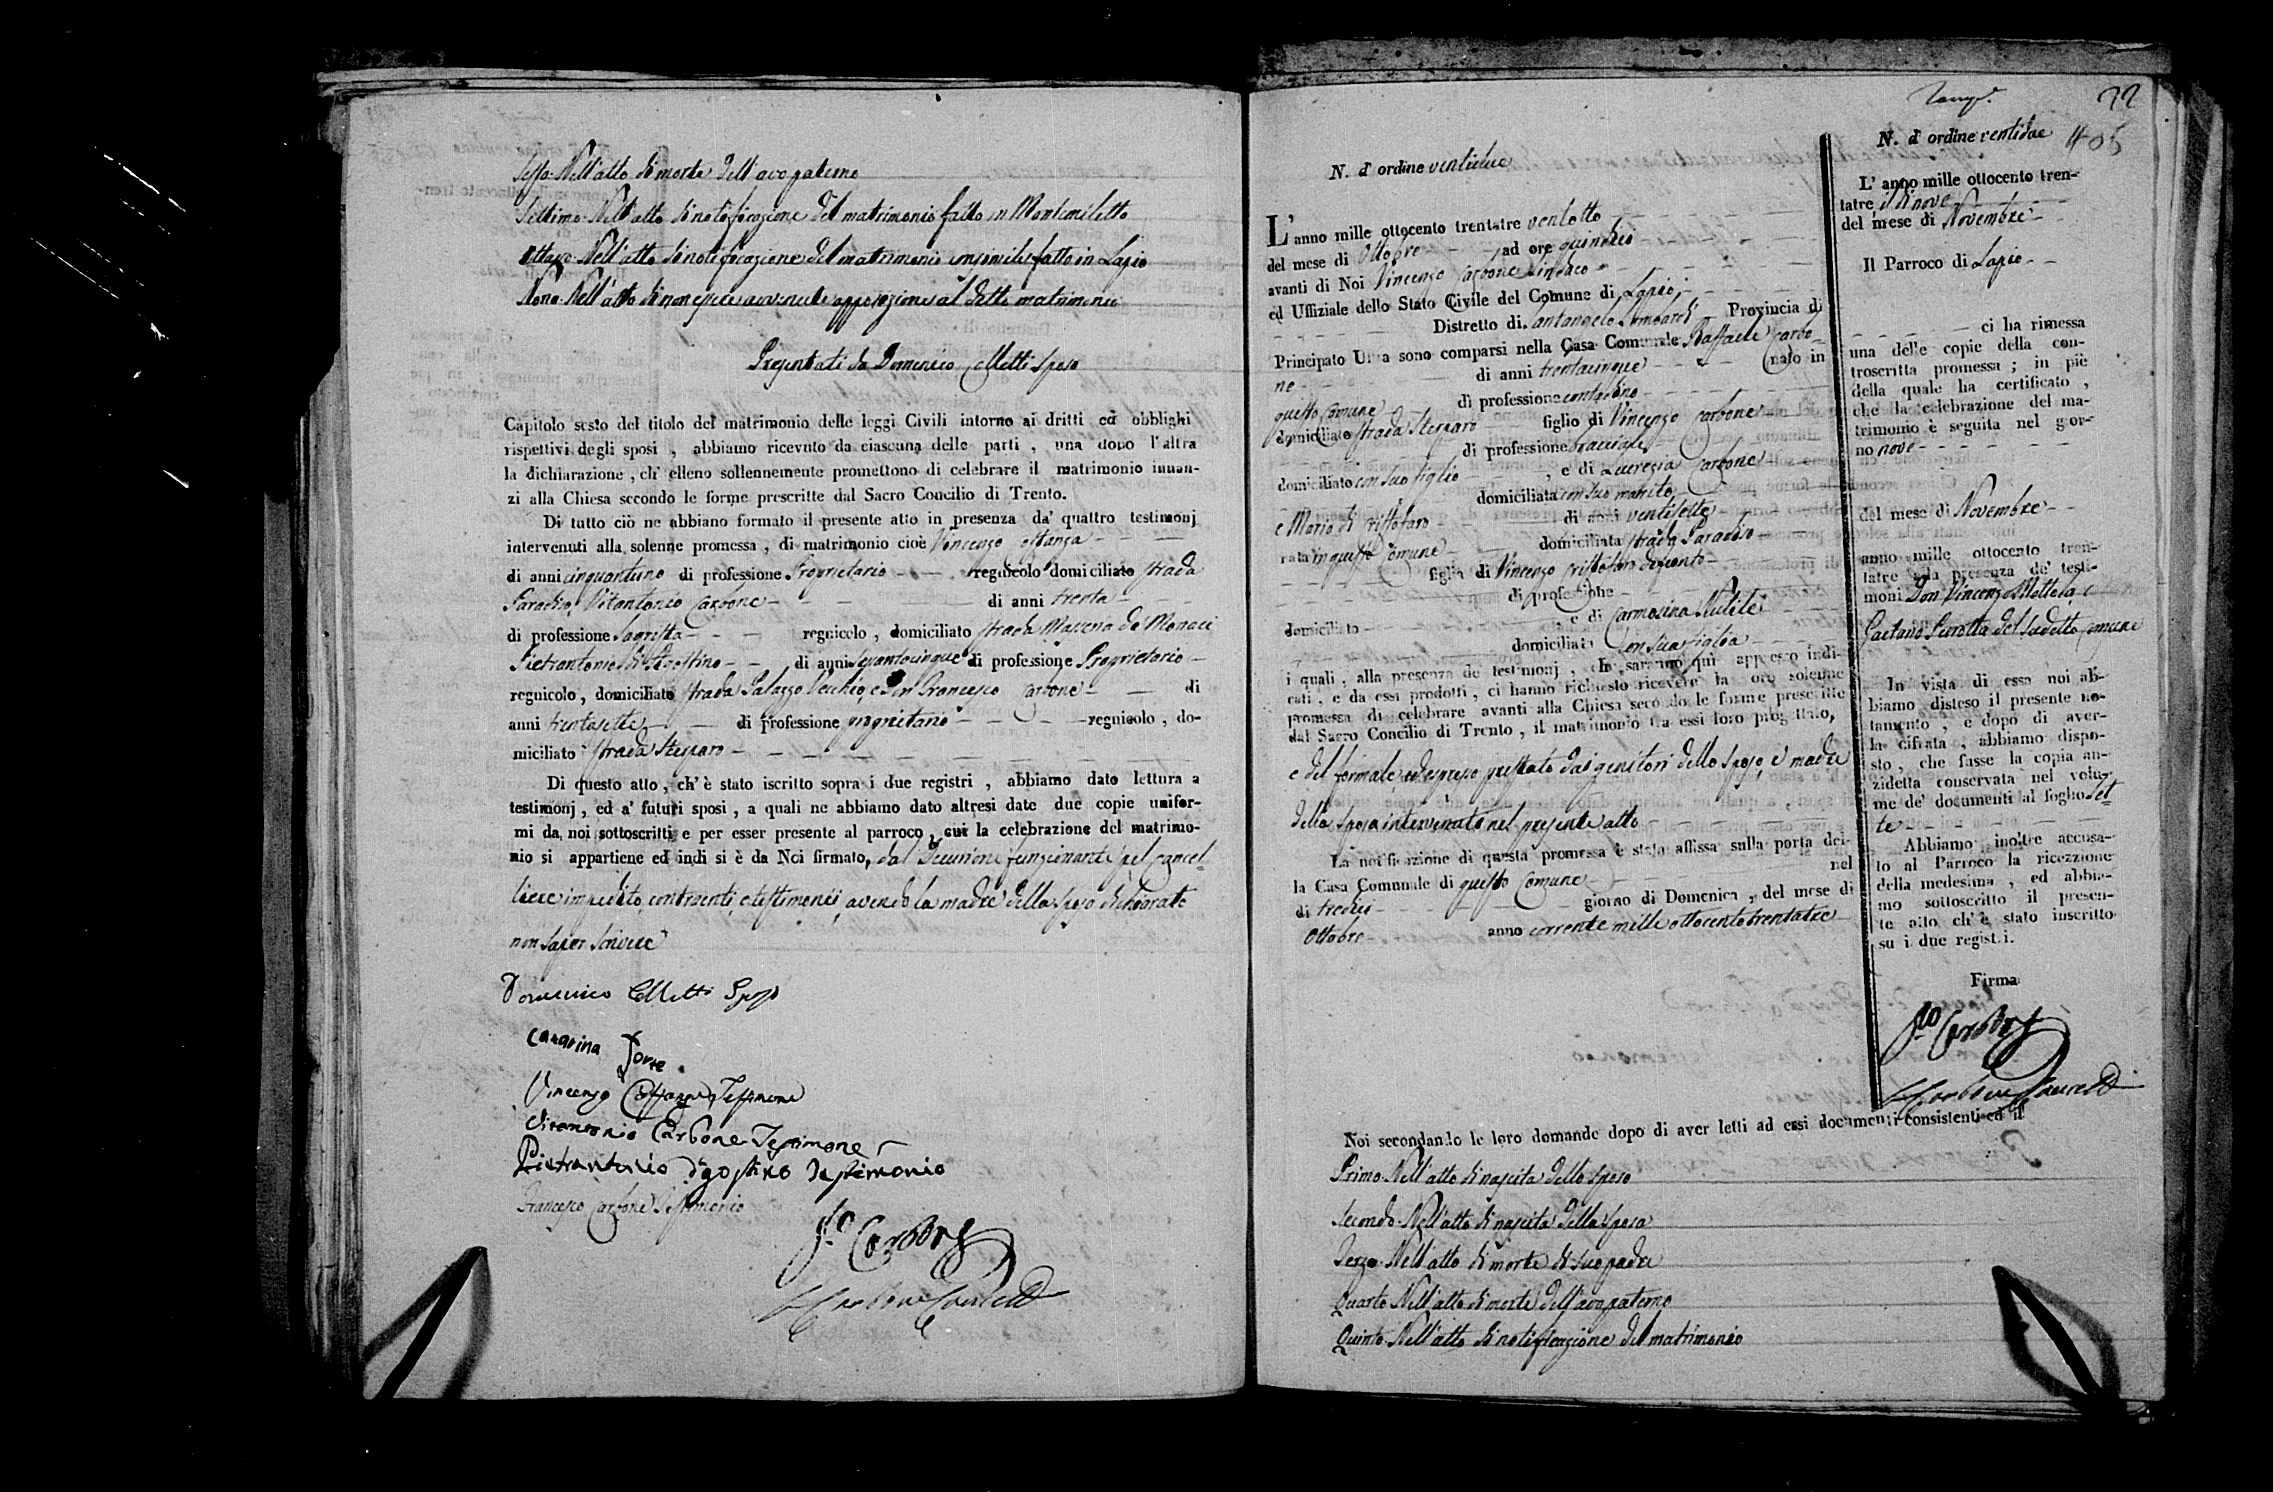 Sesto. Nell'atto di morte dell'avo paterno
Settimo. Nell'atto di notificazione del matrimonio fatto in Montemiletto
Ottavo. Nell'atto di notificazione del matrimonio consimile fatto in Lapio
Nono. Nell'atto di non essere avvenuta opposizione al detto matrimonio
Presentati da Domenico Colletti sposo
Capitolo sesto del titolo del matrimonio delle leggi Civili intorno ai dritti ed obblighi
rispettivi degli sposi , abbiamo ricevuto da ciascuna delle parti , una dopo l'altra
la dichiarazione , ch' elleno sollennemente promettono di celebrare il matrimonio innan-
zi alla Chiesa secondo le forme prescritte dal Sacro Concilio di Trento.
Di tutto ciò ne abbiano formato il presente atto in presenza da' quattro testimonj
intervenuti alla solenne promessa , di matrimonio cioè Vincenzo
di anni cinquantuno di professione Proprietario regnicolo domiciliato strada
Paradiso, Vitantonio Carbone di anni trenta
di professione Sagrista regnicolo , domiciliato strada Macera de Monaci
Pietrantonio d'Agostino di anni sessantacinque di professione Proprietario
regnicolo , domiciliato strada Palazzo Vecchio, e Don Francesco Carbone di
anni trentasette di professione proprietario regnicolo , do-
miciliato strada Stessaro
Di questo atto , ch' è stato iscritto sopra i due registri , abbiamo dato lettura a
testimonj , ed a' futuri sposi , a quali ne abbiamo dato altresi date due copie unifor-
mi da noi sottoscritti e per esser presente al parroco , cui la celebrazione del matrimo-
nio si appartiene ed indi si è da Noi firmato, dal Decurione funzionante pel cancel
liere impedito, contraenti, e testimonii, avendo la madre della sposa dichiarato
non saper scrivere
Domenico Colletti Sposo
Carmina Forte
Vincenzo Testimone
Vitantonio Carbone Testimone
Pietrantonio d'Agostino Testimonio
Francesco Carbone Testimonio
Carbone
Carbone
22
N. d' ordine ventidue
L' anno mille ottocento trentatre ventotto
del mese di Ottobre ad ore quindici
avanti di Noi Vincenzo Carbone Sindaco
ed Uffiziale dello Stato Civile del Comune di Lapio,
Distretto di Santangelo Lombardi Provincia di
Principato Ultra sono comparsi nella Casa Comunale Raffaele Carbo-
ne di anni trentacinque nato in
questo comune di professione contadino
domiciliato strada Stessaro figlio di Vincenzo Carbone
di professione bracciale
domiciliato con suo figlio , e di Lucrezia Carbone
domiciliata con suo marito,
e Maria di Cristofaro di anni ventisette
nata in questo Comune domiciliata strada Paradiso
figlia di Vincenzo Cristofaro defunto
di professione
domiciliato , e di Carmosina
domiciliata con sua figlia
i quali , alla presenza de' testimonj , che saranno qui appresso indi-
cati , e da essi prodotti , ci hanno richiesto ricevere la loro solenne
promessa di celebrare avanti alla Chiesa secondo le forme prescritte
dal Sacro Concilio di Trento , il matrimonio tra essi loro progettato,
e del formale, ed espresso prestato dai genitori dello sposo, e madre
della sposa intervenuti nel presente atto
La notificazione di questa promessa è stata affissa sulla porta del-
la Casa Comunale di questo Comune nel
di tredici giorno di Domenica , del mese di
Ottobre anno corrente mille ottocento trentatre
N. d' ordine ventidue
405
L' anno mille ottocento tren-
tatre il dì nove
del mese di Novembre
Il Parroco di Lapio
ci ha rimessa
una delle copie della con-
troscritta promessa ; in piè
della quale ha certificato ,
che la celebrazione del ma-
trimonio è seguita nel gior-
no nove
del mese di Novembre
anno mille ottocento tren-
tatre alla presenza de' testi-
moni Don Vincenzo e
Gaetano del sudetto Comune
In vista di essa noi ab-
biamo disteso il presente no-
tamento , e dopo di aver-
la cifrata , abbiamo dispo-
sto , che fasse la copia an-
zidetta conservata nel volu-
me de' documenti al foglio set-
te
Abbiamo inoltre accusa-
to al Parroco la ricezzione
della medesima , ed abbia-
mo sottoscritto il presen-
te atto ch' è stato inscritto
su i due registri.
Firma
Carbone
Carbone
Noi secondando le loro domande dopo di aver letti ad essi documenti consistenti ed il
Primo. Nell'atto di nascita dello sposo
Secondo. Nell'atto di nascita della sposa
Terzo. Nell'atto di morte di suo padre
Quarto. Nell'atto di morte dell'avo paterno
Quinto. Nell'atto di notificazione del matrimonio